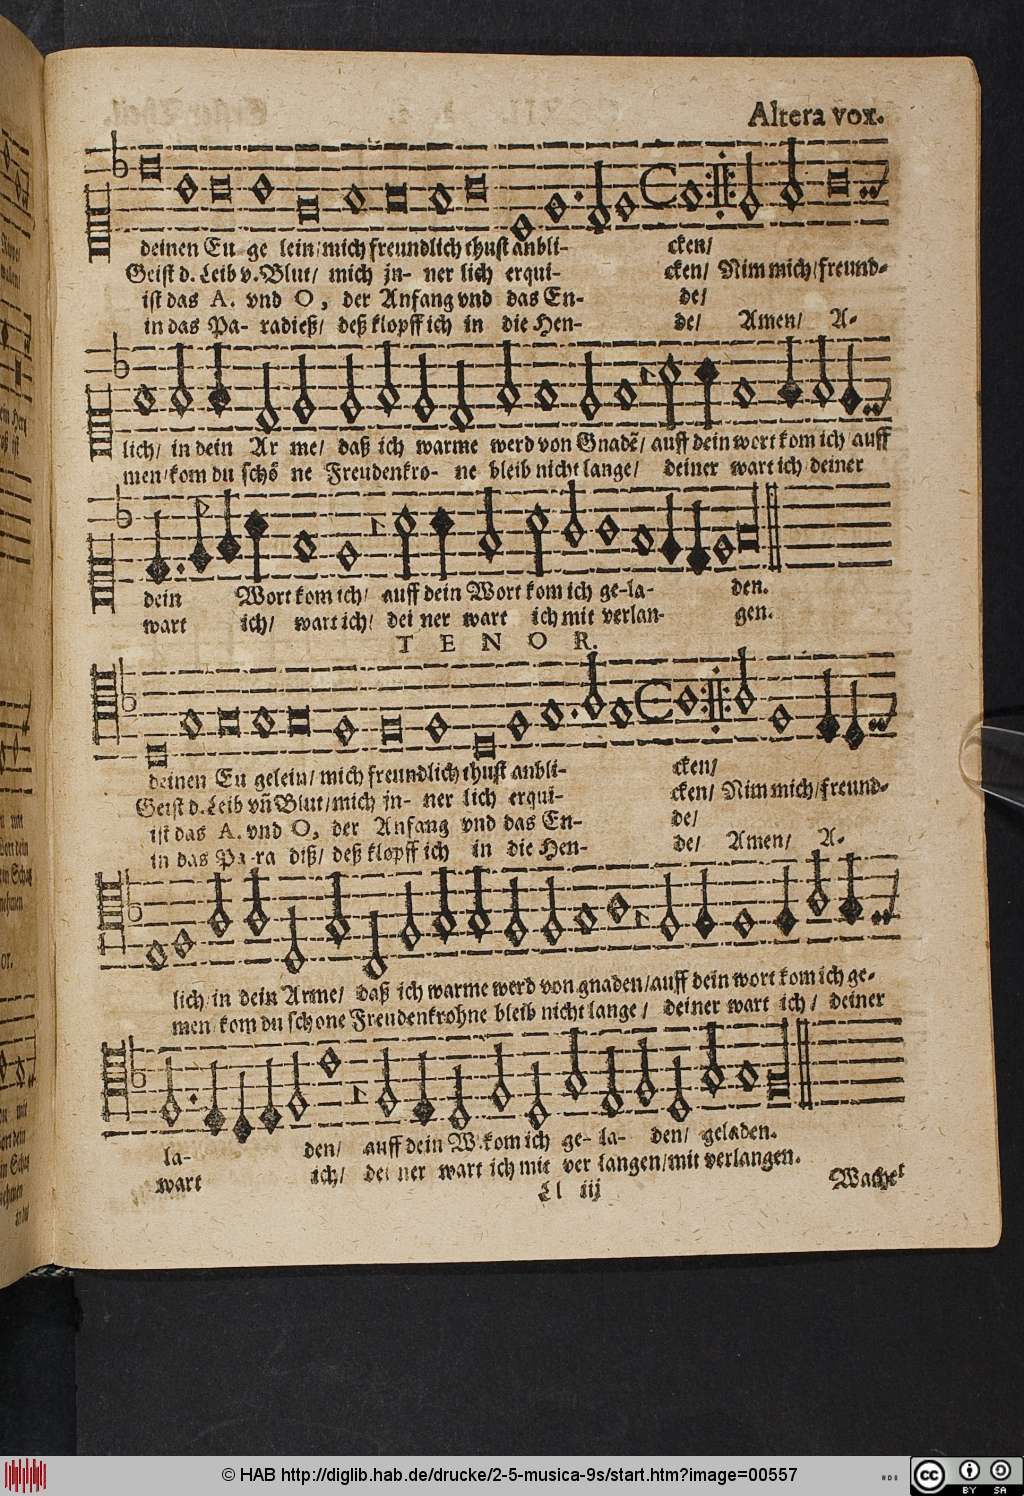 Altera vox.
deinen Eu ge lein/mich freundlich thust anbli- cken/
Geist d. Leib v. Blut/ mich jn- ner lich erqui- cken/ Nim mich/freund-
ist das A. vnd O, der Anfang vnd das En- de/
in das Pa- radieß/ deß klopff ich in die Hen- de/ Amen/ A-
lich/ in dein Ar me/ daß ich warme werd von Gnadẽ/ auff dein wort kom ich auff
men/kom du schö ne Freudenkro- ne bleib nicht lange/ deiner wart ich/deiner
dein Wort kom ich/ auff dein Wort kom ich ge-la- den.
wart ich/ wart ich/ dei ner wart ich mit verlan- gen.
TENOR.
deinen Eu gelein/ mich freundlich thust anbli- cken/
Geist d. Leib vñ Blut/mich jn- ner lich erqui- cken/ Nim mich/freund-
ist das A. vnd O, der Anfang vnd das En- de/
in das Pa-ra diß/ deß klopff ich in die Hen- de/ Amen/ A-
lich/in dein Arme/ daß ich warme werd von gnaden/auff dein wort kom ich ge-
men/kom du schone Freudenkrohne bleib nicht lange/ deiner wart ich/ deiner
la- den/ auff dein W. kom ich ge- la- den/ geladen.
wart ich/ dei ner wart ich mit ver langen/mit verlangen.
Ll iij
Wachet
© HAB http://diglib.hab.de/drucke/2-5-musica-9s/start.htm?image=00557
cc BY SA